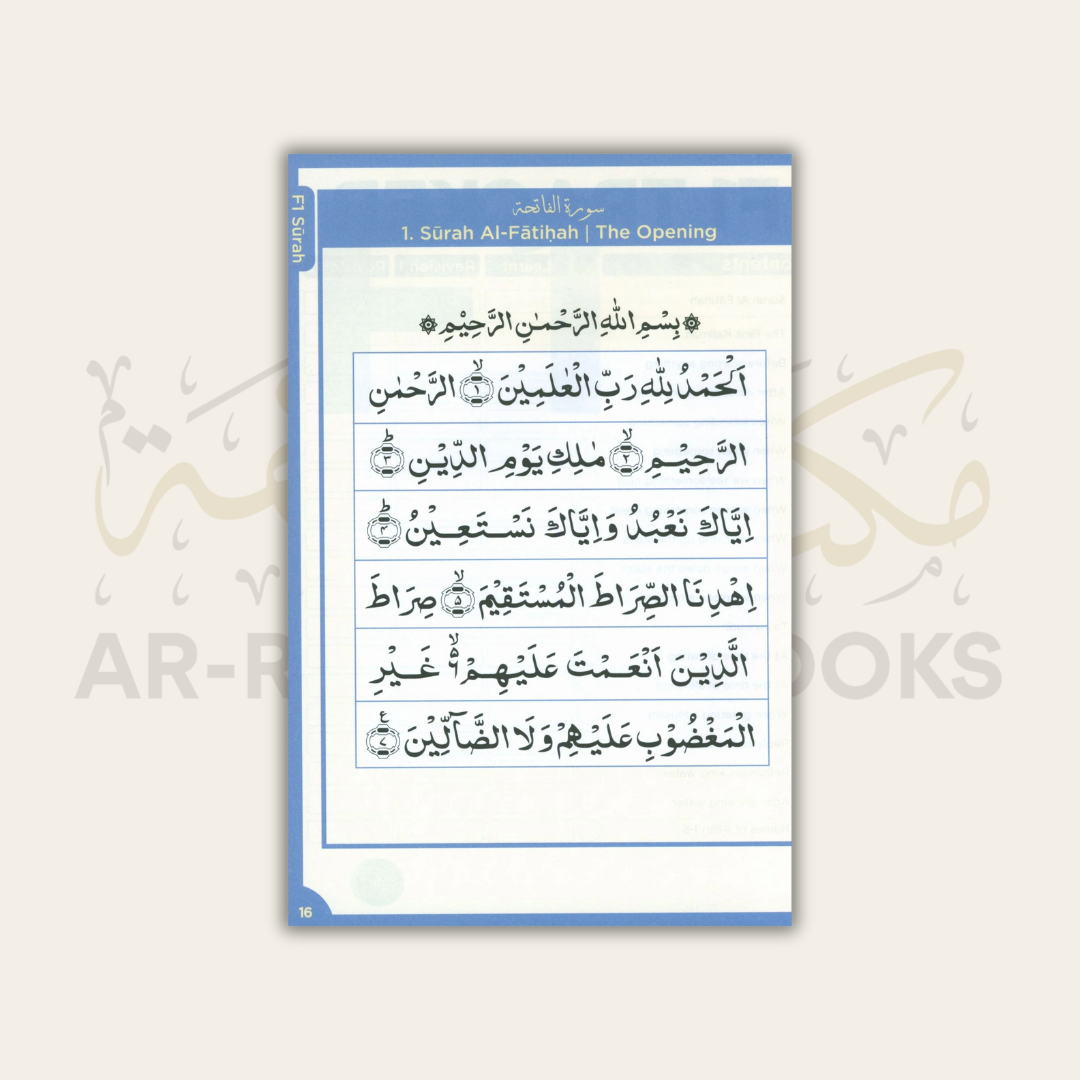 سورة الفاتحة
1. Sūrah Al-Fātiḥah | The Opening
F1 Sūrah
۞ بِسْمِ اللهِ الرَّحْمٰنِ الرَّحِيْمِ ۞
اَلْحَمْدُ لِلّٰهِ رَبِّ الْعٰلَمِيْنَ ۙ‏﴿۱﴾ الرَّحْمٰنِ
الرَّحِيْمِ ۙ‏﴿۲﴾ مٰلِكِ يَوْمِ الدِّيْنِ ؕ‏﴿۳﴾
اِيَّاكَ نَعْبُدُ وَاِيَّاكَ نَسْتَعِيْنُ ؕ‏﴿۴﴾
اِهْدِنَا الصِّرَاطَ الْمُسْتَقِيْمَ ۙ‏﴿۵﴾ صِرَاطَ
الَّذِيْنَ اَنْعَمْتَ عَلَيْهِمْ ۙ۶ غَيْرِ
الْمَغْضُوْبِ عَلَيْهِمْ وَلَا الضَّآلِّيْنَ ﴿۷﴾ ع
16
AR-R
OOKS